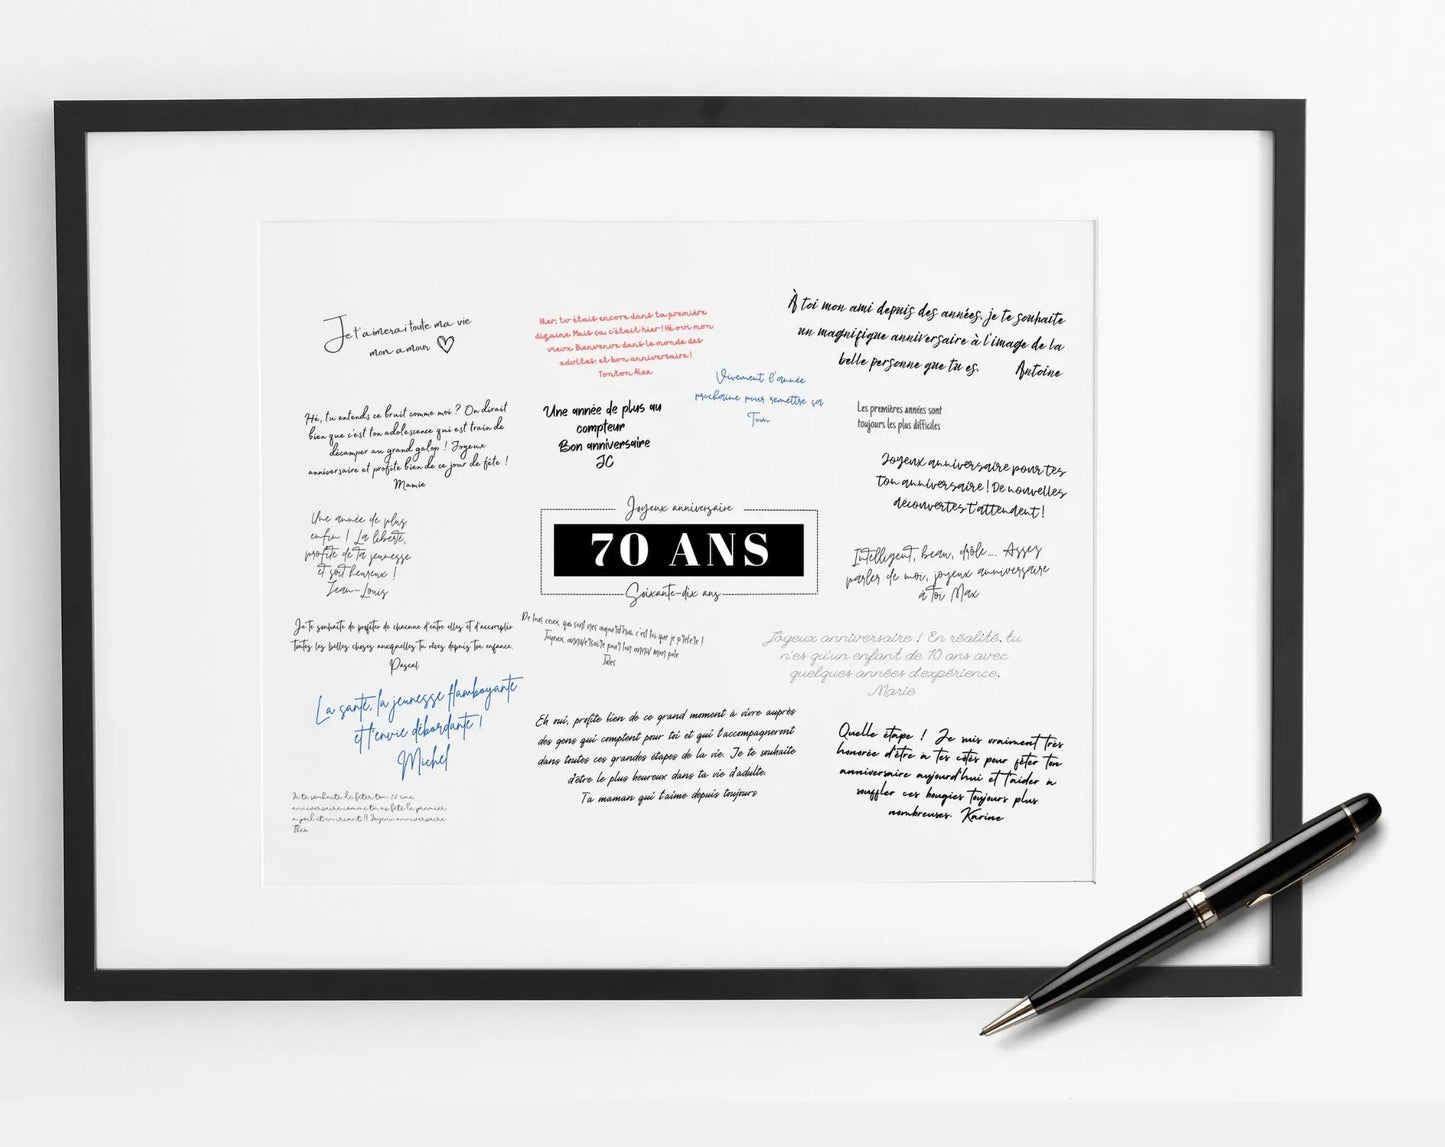 Je t'aimerai toute ma vie
mon amour
Hier, tu étais encore dans ta première
dizaine. Mais ça, c'était hier ! Hé oui mon
vieux. Bienvenue dans le monde des
adultes, et bon anniversaire !
Tonton Alex
À toi mon ami depuis des années, je te souhaite
un magnifique anniversaire à l'image de la
belle personne que tu es. Antoine
Vivement l'année
prochaine pour remettre ça
Tom
Hé, tu entends ce bruit comme moi ? On dirait
bien que c'est ton adolescence qui est train de
décamper au grand galop ! Joyeux
anniversaire et profite bien de ce jour de fête !
Mamie
Une année de plus au
compteur
Bon anniversaire
JC
Les premières années sont
toujours les plus difficiles
Joyeux anniversaire pour tes
ton anniversaire ! De nouvelles
découvertes t'attendent !
Une année de plus
enfin ! La liberté,
profite de ta jeunesse
et soit heureux !
Jean-Louis
Joyeux anniversaire
70 ANS
Soixante-dix ans
Intelligent, beau, drôle.... Assez
parler de moi, joyeux anniversaire
à toi Max
Je te souhaite de profiter de chacune d'entre elles et d'accomplir
toutes les belles choses auxquelles tu rêves depuis ton enfance.
Pascal
De tous ceux, qui sont nés aujourd'hui, c'est toi que je préfère !
Joyeux anniversaire pour ton anniv mon pote
Jules
Joyeux anniversaire ! En réalité, tu
n'es qu'un enfant de 10 ans avec
quelques années d'expérience.
Marie
La santé, la jeunesse flamboyante
et l'envie débordante !
Michel
Eh oui, profite bien de ce grand moment à vivre auprès
des gens qui comptent pour toi et qui t'accompagneront
dans toutes ces grandes étapes de la vie. Je te souhaite
d'être le plus heureux dans ta vie d'adulte.
Ta maman qui t'aime depuis toujours
Quelle étape ! Je suis vraiment très
honorée d'être à tes côtés pour fêter ton
anniversaire aujourd'hui et t'aider à
souffler ces bougies toujours plus
nombreuses. Karine
Je te souhaite de fêter ton
anniversaire comme tu as fêté le premier
à poil et en criant !! Joyeux anniversaire
Théo